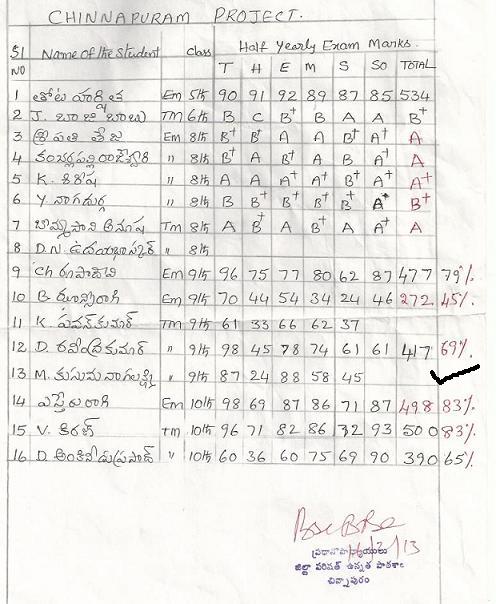 CHINNAPURAM PROJECT.
Half Yearly Exam Marks.
Sl NO Name of the Student class T H E M S So TOTAL
1 తోట హర్షిత Em 5th 90 91 92 89 87 85 534
2 J. బాజి బాబు TM 6th B C B+ B A A B+
3 శ్రీపతి తేజ Em 8th B+ B+ A A B+ A+ A
4 రాజేశ్వరి " 8th B+ A B+ A B A+ A
5 K. శిరీష " 8th A A A+ A B+ A+ A+
6 Y నాగదుర్గ " 8th B B+ B+ B+ B+ A+ B+
7 అనూష Tm 8th A B+ A B+ A A+ A
8 D.N. ఉదయభాస్కర్ " 8th
9 Ch రూపాదేవి Em 9th 96 75 77 80 62 87 477 79%
10 B. ఝాన్సీరాణి Em 9th 70 44 54 34 24 46 272 45%
11 K పవన్ కుమార్ TM 9th 61 33 66 62 37
12 D. రవీంద్రకుమార్ " 9th 98 45 78 74 61 61 417 69%.
13 M. కుసుమ నాగలక్ష్మి " 9th 87 24 88 58 45
14 ఎస్తేరు రాణి Em 10th 98 69 87 86 71 87 498 83%
15 V. కిరణ్ TM 10th 96 71 82 86 72 93 500 83%
16 D. అంకినీడు ప్రసాద్ " 10th 60 36 60 75 69 90 390 65%
ప్రధానోపాధ్యాయులు
జిల్లా పరిషత్ ఉన్నత పాఠశాల
చిన్నాపురం